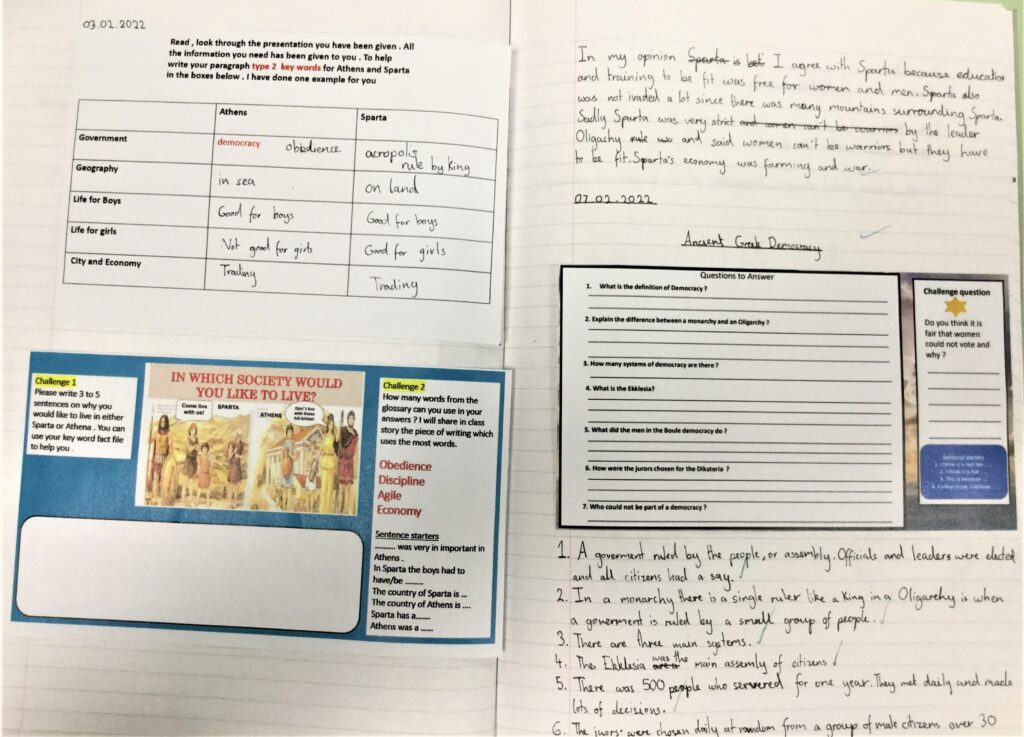 03.02.2022
Read , look through the presentation you have been given . All
the information you need has been given to you . To help
write your paragraph type 2 key words for Athens and Sparta
in the boxes below . I have done one example for you
Athens Sparta
Government democracy obedience acropolis
rule by King
Geography in sea on land
Life for Boys Good for boys Good for boys
Life for girls Not good for girls Good for girls
City and Economy Trading Trading
Challenge 1
Please write 3 to 5
sentences on why you
would like to live in either
Sparta or Athena . You can
use your key word fact file
to help you .
IN WHICH SOCIETY WOULD
YOU LIKE TO LIVE?
Come live
with us!
SPARTA
ATHENS
Don't live
with those
Challenge 2
How many words from the
glossary can you use in your
answers ? I will share in class
story the piece of writing which
uses the most words.
Obedience
Discipline
Agile
Economy
Sentence starters
.......... was very in important in
Athens .
In Sparta the boys had to
have/be .........
The country of Sparta is ...
The country of Athens is ....
Sparta has a.......
Athens was a ......
In my opinion Sparta is I agree with Sparta because education
and training to be fit was free for women and men. Sparta also
was not ivaded a lot since there was many mountains surrounding Sparta
Sadly Sparta was very strict and women can't be warriors by the leader
Oligachy rule and said women can't be warriors but they have
to be fit. Sparta's economy was farming and war.
07.02.2022
Ancient Greek Democracy
Questions to Answer
1. What is the definition of Democracy ?
2. Explain the difference between a monarchy and an Oligarchy ?
3. How many systems of democracy are there ?
4. What is the Ekklesia?
5. What did the men in the Boule democracy do ?
6. How were the jurors chosen for the Dikateria ?
7. Who could not be part of a democracy ?
Challenge question
Do you think it is
fair that women
could not vote and
why ?
Sentence starters
1. I think it is not fair
2. I think it is fair
3. This is because
4. Furthermore, I believe
1. A goverment ruled by the people, or assembly. Officials and leaders were elected
and all citizens had a say.
2. In a monarchy there is a single ruler like a King in a Oligarchy is when
a goverment is ruled by a small group of people.
3. There are three main systems.
4. The Ekklesia was the main assembly of citizens
5. There was 500 people who servered for one year. They met daily and made
lots of decisions.
6. The jurors were chosen daily at random from a group of male citizens over 30